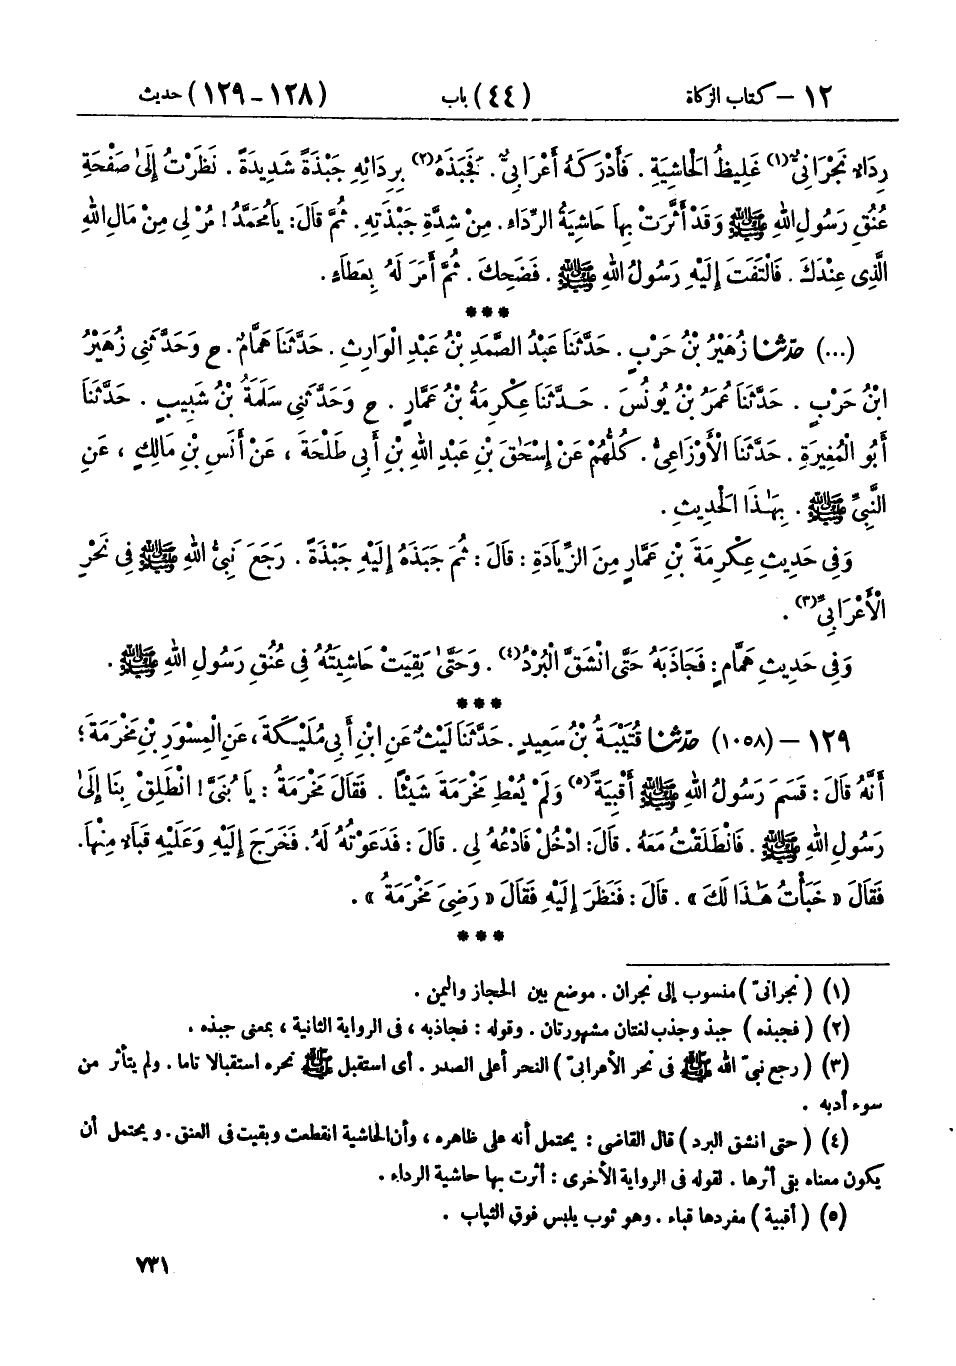 ١٢ – كتاب الزكاة (٤٤) باب (١٢٨ – ١٢٩) حديث
رِدَاءٌ نَجْرَانِىٌّ(١) غَلِيظُ الْحَاشِيَةِ . فَأَدْرَكَهُ أَعْرَابِىٌّ . فَجَبَذَهُ(٢) بِرِدَائِهِ جَبْذَةً شَدِيدَةً . نَظَرْتُ إِلَىٰ صَفْحَةِ
عُنُقِ رَسُولِ اللهِ ﷺ وَقَدْ أَثَّرَتْ بِهَا حَاشِيَةُ الرِّدَاءِ . مِنْ شِدَّةِ جَبْذَتِهِ . ثُمَّ قَالَ : يَا مُحَمَّدُ ! مُرْ لِى مِنْ مَالِ اللهِ
الَّذِى عِنْدَكَ . فَالْتَفَتَ إِلَيْهِ رَسُولُ اللهِ ﷺ . فَضَحِكَ . ثُمَّ أَمَرَ لَهُ بِعَطَاءٍ .
***
(...) حَدَّثَنَا زُهَيْرُ بْنُ حَرْبٍ . حَدَّثَنَا عَبْدُ الصَّمَدِ بْنُ عَبْدِ الْوَارِثِ . حَدَّثَنَا هَمَّامٌ . ح وَحَدَّثَنِى زُهَيْرُ
ابْنُ حَرْبٍ . حَدَّثَنَا عُمَرُ بْنُ يُونُسَ . حَدَّثَنَا عِكْرِمَةُ بْنُ عَمَّارٍ . ح وَحَدَّثَنِى سَلَمَةُ بْنُ شَبِيبٍ . حَدَّثَنَا
أَبُو الْمُغِيرَةِ . حَدَّثَنَا الْأَوْزَاعِىُّ . كُلُّهُمْ عَنْ إِسْحَٰقَ بْنِ عَبْدِ اللهِ بْنِ أَبِى طَلْحَةَ ، عَنْ أَنَسِ بْنِ مَالِكٍ ، عَنِ
النَّبِىِّ ﷺ . بِهَٰذَا الْحَدِيثِ .
وَفِى حَدِيثِ عِكْرِمَةَ بْنِ عَمَّارٍ مِنَ الزِّيَادَةِ : قَالَ : ثُمَ جَبَذَهُ إِلَيْهِ جَبْذَةً . رَجَعَ نَبِىُّ اللهِ ﷺ فِى نَحْرِ
الْأَعْرَابِىِّ(٣) .
وَفِى حَدِيثِ هَمَّامٍ : فَجَاذَبَهُ حَتَّى انْشَقَّ الْبُرْدُ(٤) . وَحَتَّىٰ بَقِيَتْ حَاشِيَتُهُ فِى عُنُقِ رَسُولِ اللهِ ﷺ .
***
١٢٩ – (١٠٥٨) حَدَّثَنَا قُتَيْبَةُ بْنُ سَعِيدٍ . حَدَّثَنَا لَيْثٌ عَنِ ابْنِ أَبِى مُلَيْكَةَ ، عَنِ الْمِسْوَرِ بْنِ مَخْرَمَةَ ؛
أَنَّهُ قَالَ : قَسَمَ رَسُولُ اللهِ ﷺ أَقْبِيَةً(٥) وَلَمْ يُعْطِ مَخْرَمَةَ شَيْئًا . فَقَالَ مَخْرَمَةُ : يَا بُنَىَّ ! انْطَلِقْ بِنَا إِلَىٰ
رَسُولِ اللهِ ﷺ . فَانْطَلَقْتُ مَعَهُ . قَالَ : ادْخُلْ فَادْعُهُ لِى . قَالَ : فَدَعَوْتُهُ لَهُ . فَخَرَجَ إِلَيْهِ وَعَلَيْهِ قَبَاءٌ مِنْهَا .
فَقَالَ « خَبَأْتُ هَٰذَا لَكَ » . قَالَ : فَنَظَرَ إِلَيْهِ فَقَالَ « رَضِىَ مَخْرَمَةُ » .
***
(١) ( نجرانىّ ) منسوب إلى نجران . موضع بين الحجاز واليمن .
(٢) ( فجبذه ) جبذ وجذب لغتان مشهورتان . وقوله : فجاذبه ، فى الرواية الثانية ، بمعنى جبذه .
(٣) ( رجع نبىّ الله ﷺ فى نحر الأعرابىّ ) النحر أعلى الصدر . أى استقبل ﷺ نحره استقبالا تاما . ولم يتأثر من
سوء أدبه .
(٤) ( حتى انشق البرد ) قال القاضى : يحتمل أنه على ظاهره ، وأن الحاشية انقطعت وبقيت فى العنق . ويحتمل أن
يكون معناه بقى أثرها . لقوله فى الرواية الأخرى : أثرت بها حاشية الرداء .
(٥) ( أقبية ) مفردها قباء . وهو ثوب يلبس فوق الثياب .
٧٣١